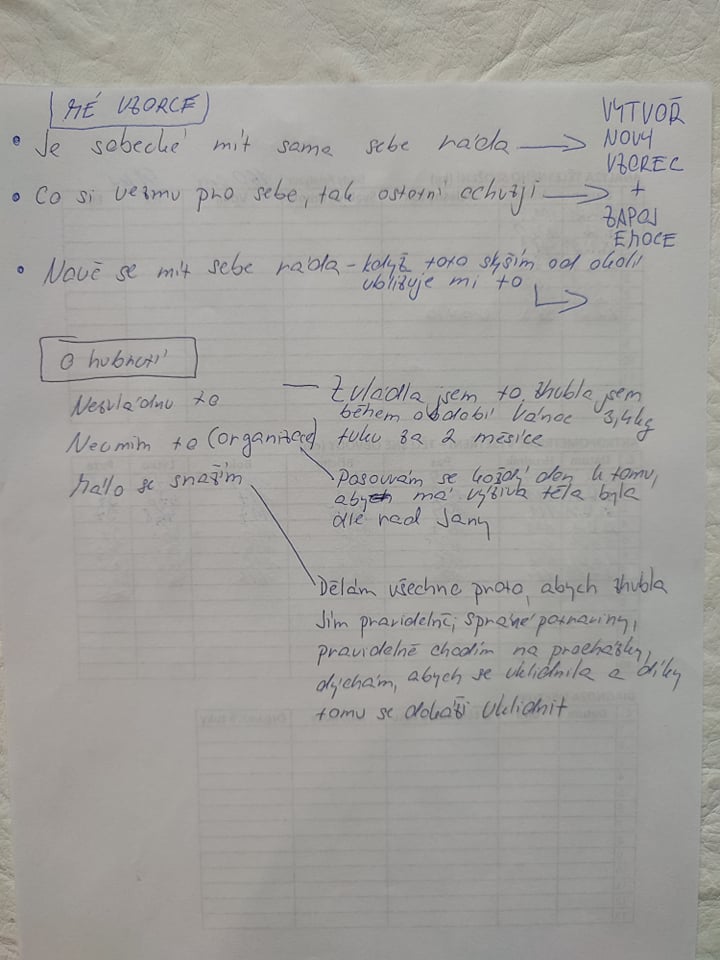 MÉ VZORCE
• Je sobecké mít sama sebe ráda →
• Co si vezmu pro sebe, tak ostatní ochuzuji →
VYTVOŘ
NOVÝ
VZOREC
+
ZAPOJ
EMOCE
• Nově se mít sebe ráda - když toto slyším od okolí
ubližuje mi to
O hubnutí
Nezvládnu to — Zvládla jsem to, zhubla jsem
během období Vánoc 3,4kg
tuku za 2 měsíce
Neumím to (organizace)
Posouvám se každý den k tomu,
aby má výživa těla byla
dle rad Jany
Málo se snažím
Dělám všechno proto, abych zhubla
Jím pravidelně, správné potraviny,
pravidelně chodím na procházky,
dýchám, abych se uklidnila a díky
tomu se dokáži uklidnit